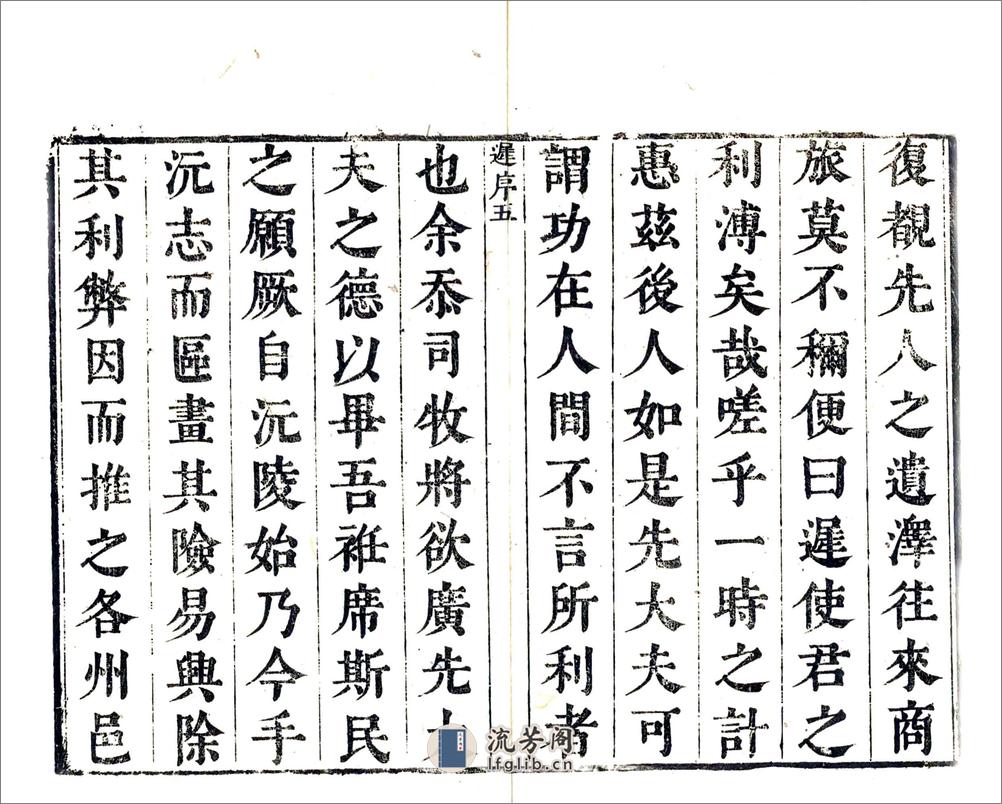 復覩先人之遺澤往來商
旅莫不穪便曰遲使君之
利溥矣哉嗟乎一時之計
惠茲後人如是先大夫可
謂功在人間不言所利者
遲序五
也余忝司牧將欲廣先大
夫之德以畢吾袵席斯民
之願厥自沅陵始乃今手
沅志而區畫其險易興除
其利弊因而推之各州邑
流芳阁
lfglib.cn